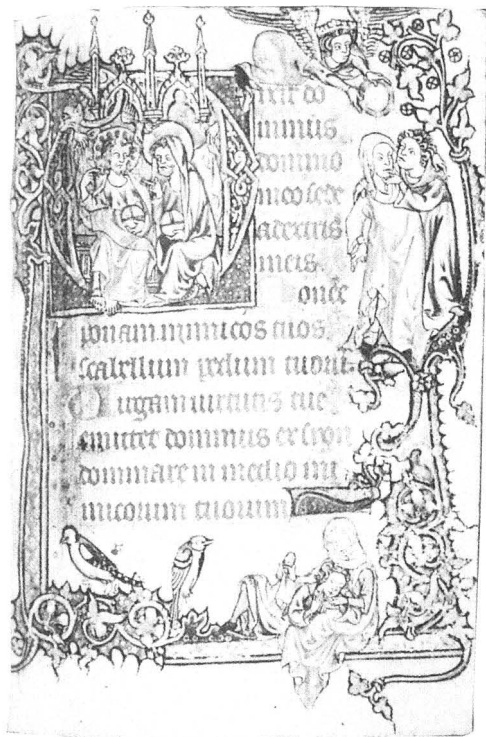 ixit do
minus
domino
meo sede
a dextris
meis.
onec
ponam inimicos tuos
scabellum pedum tuorum
Uirgam uirtutis tue
emittet dominus ex syon
dominare in medio ini
micorum tuorum